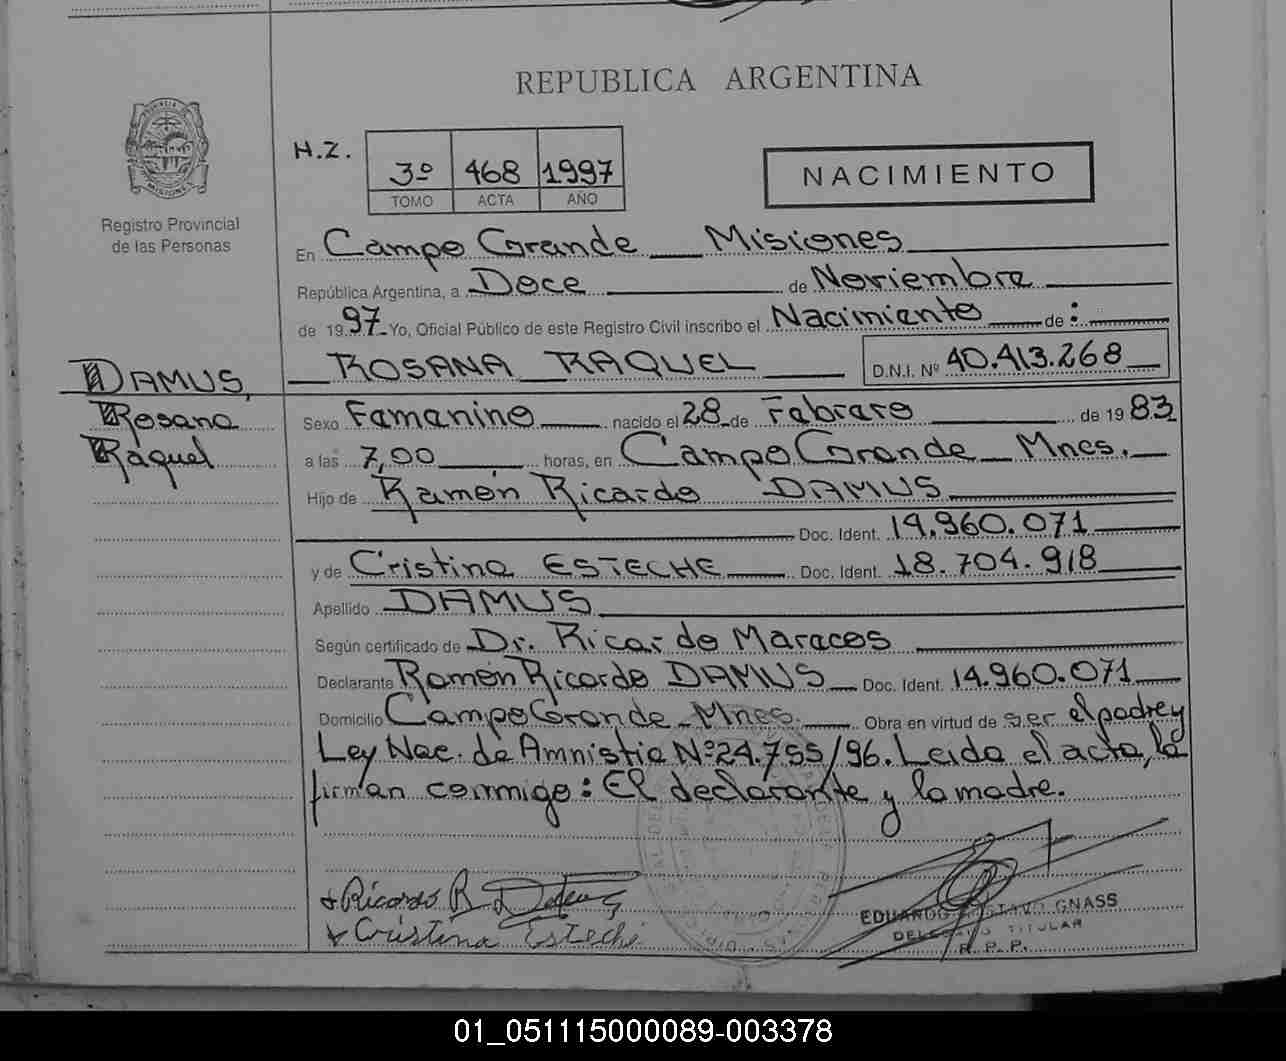 REPUBLICA ARGENTINA
PROVINCIA DE
MISIONES
Registro Provincial
de las Personas
H.Z.
3º 468 1997
TOMO ACTA AÑO
NACIMIENTO
En Campo Grande Misiones
República Argentina, a Doce de Noviembre
de 1997 Yo, Oficial Público de este Registro Civil inscribo el Nacimiento de:
ROSANA RAQUEL D.N.I. Nº 40.413.268
DAMUS,
Rosana
Raquel
Sexo Femenino nacido el 28 de Febrero de 1983
a las 7,00 horas, en Campo Grande Mnes.
Hijo de Ramón Ricardo DAMUS
Doc. Ident. 14.960.071
y de Cristina ESTECHE Doc. Ident. 18.704.918
Apellido DAMUS
Según certificado de Dr. Ricardo Maracos
Declarante Ramón Ricardo DAMUS Doc. Ident. 14.960.071
Domicilio Campo Grande Mnes. Obra en virtud de ser el padre y
Ley Nac. de Amnistia Nº 24.755/96. Leida el acta, la
firman conmigo: El declarante y la madre.
Ricardo R
Cristina Esteche
EDUARDO GUSTAVO GNASS
DELEGADO TITULAR
R. P. P.
01_051115000089-003378